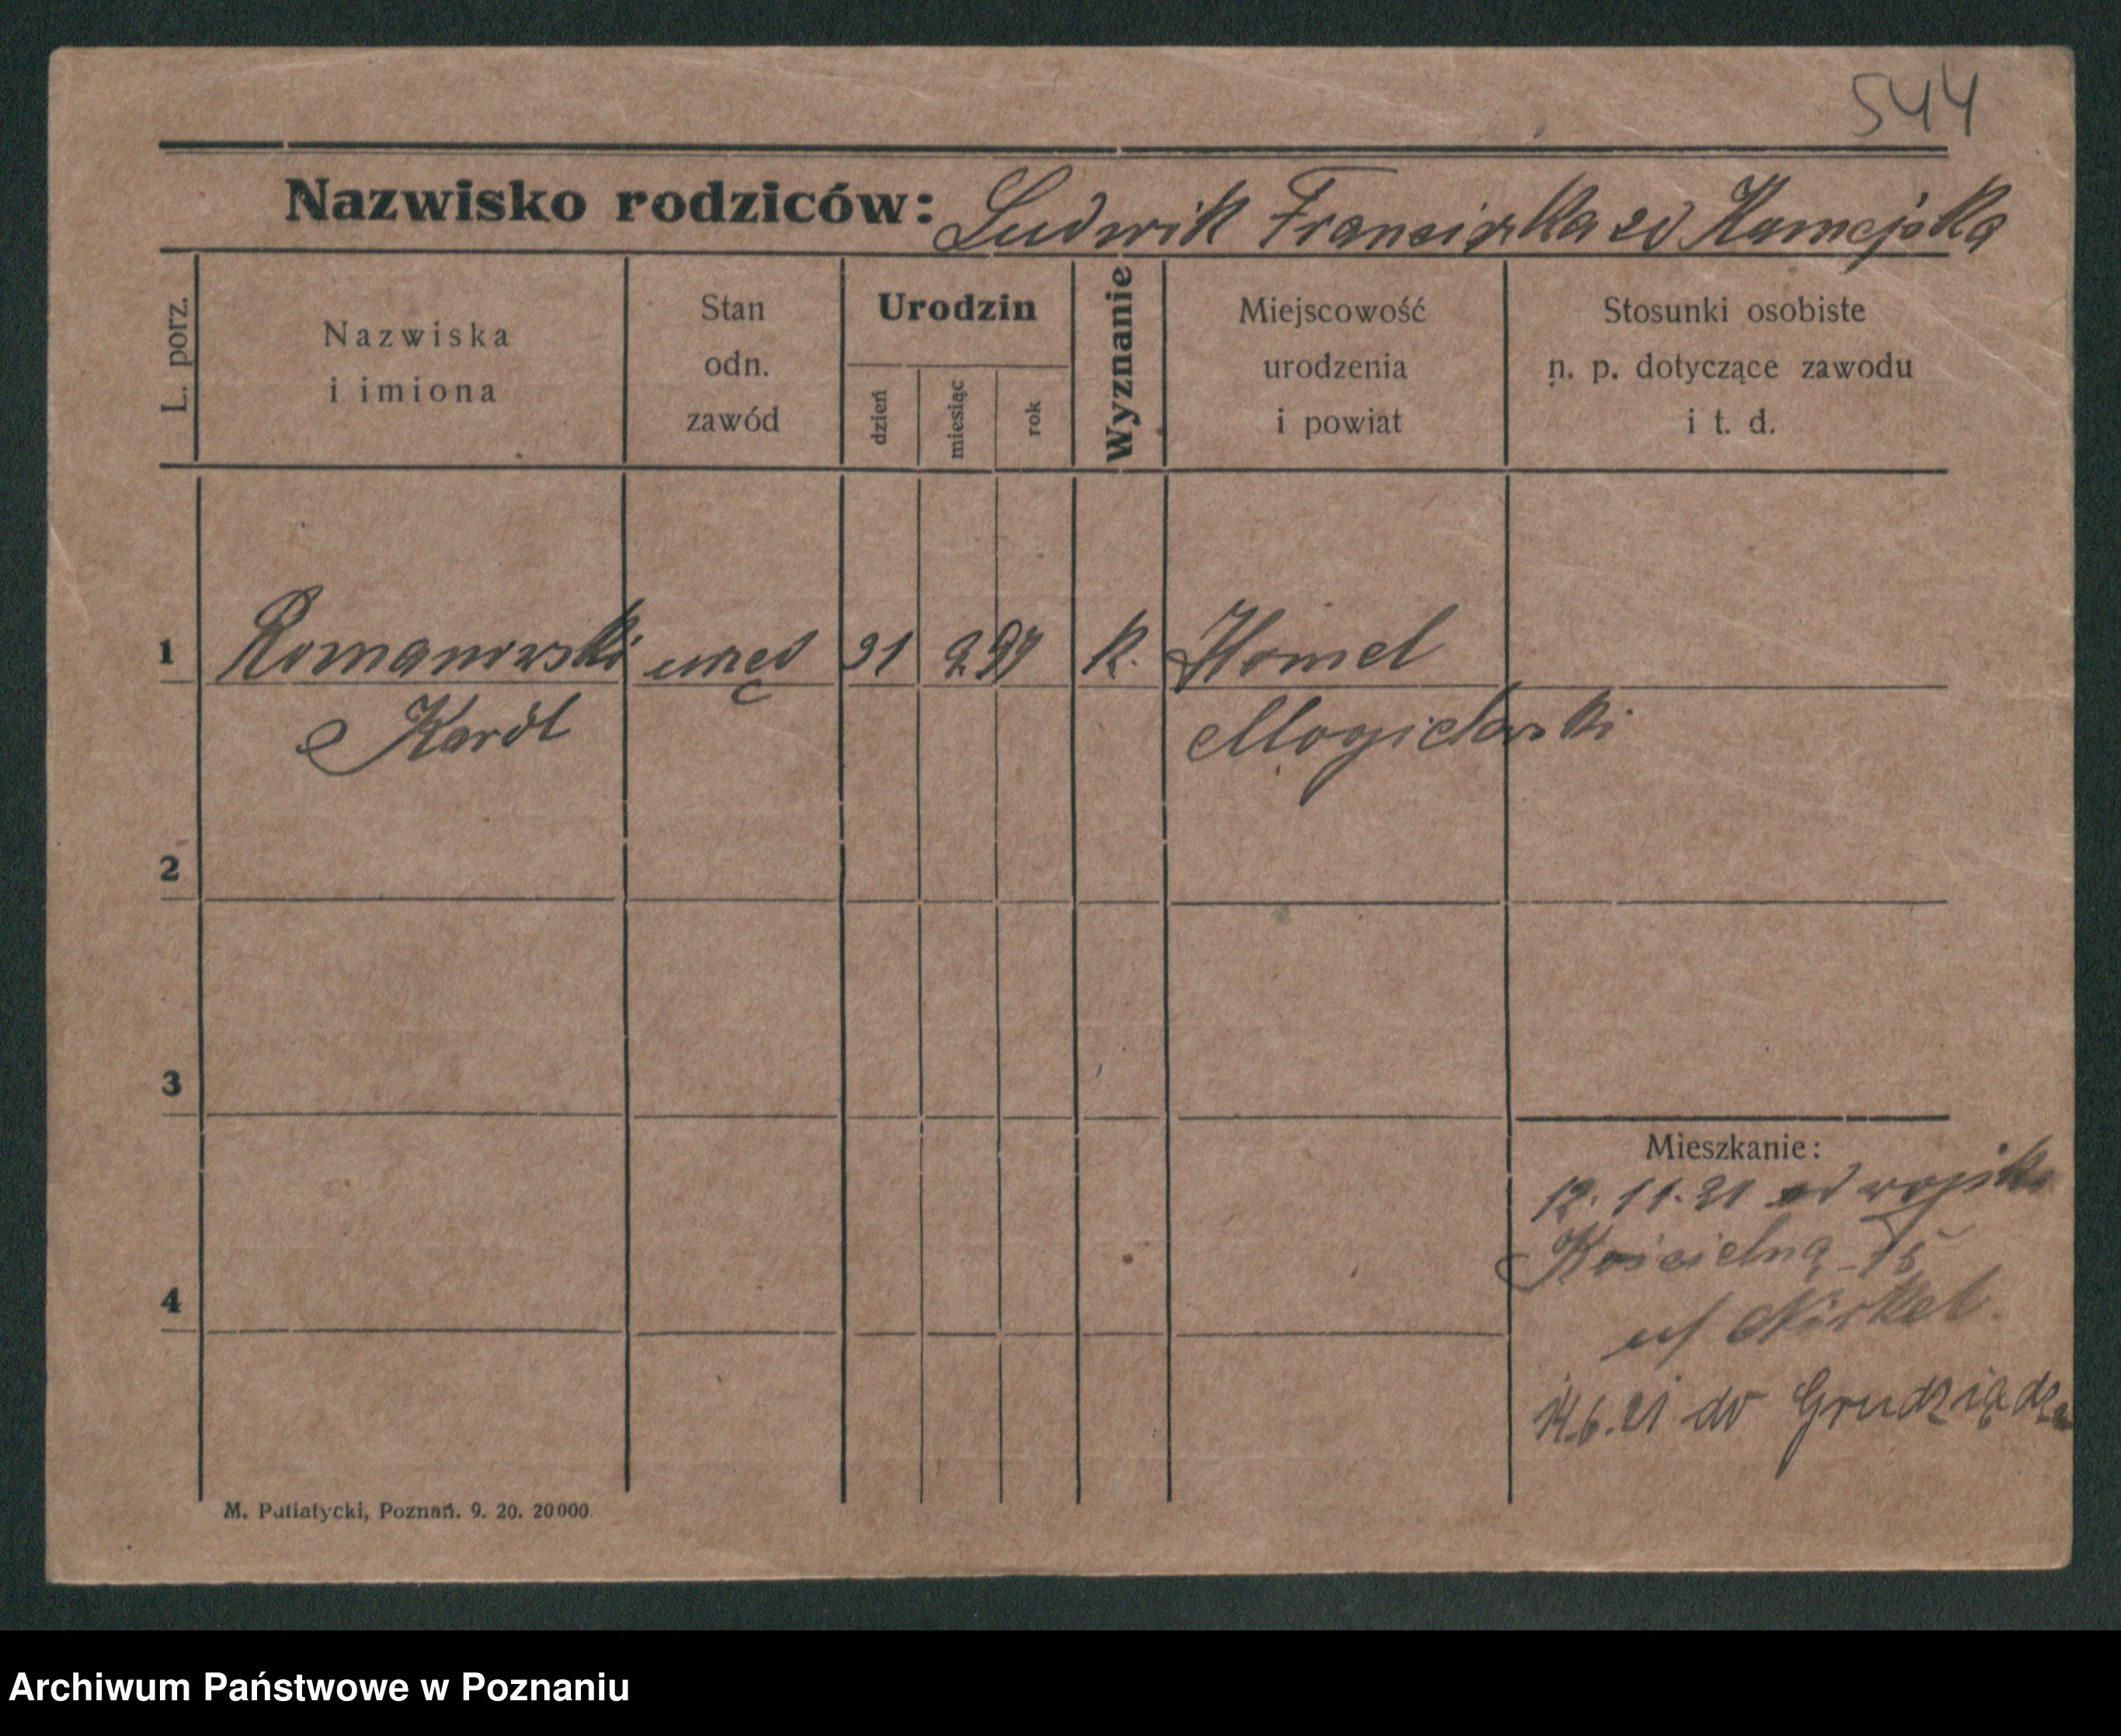 544
Nazwisko rodziców: Ludwik Franciszka zd Kamejska
L. porz.
Nazwiska
i imiona
Stan
odn.
zawód
Urodzin
dzień
miesiąc
rok
Wyznanie
Miejscowość
urodzenia
i powiat
Stosunki osobiste
n. p. dotyczące zawodu
i t. d.
1 Romanowski urzęd 31 K. Homel
Karól Mogielowski
2
3
4
Mieszkanie:
12. 11. 21 od wojska
Kościelna 15
14.6.21 do Grudziądza
M. Putiatycki, Poznań. 9. 20. 20000.
Archiwum Państwowe w Poznaniu